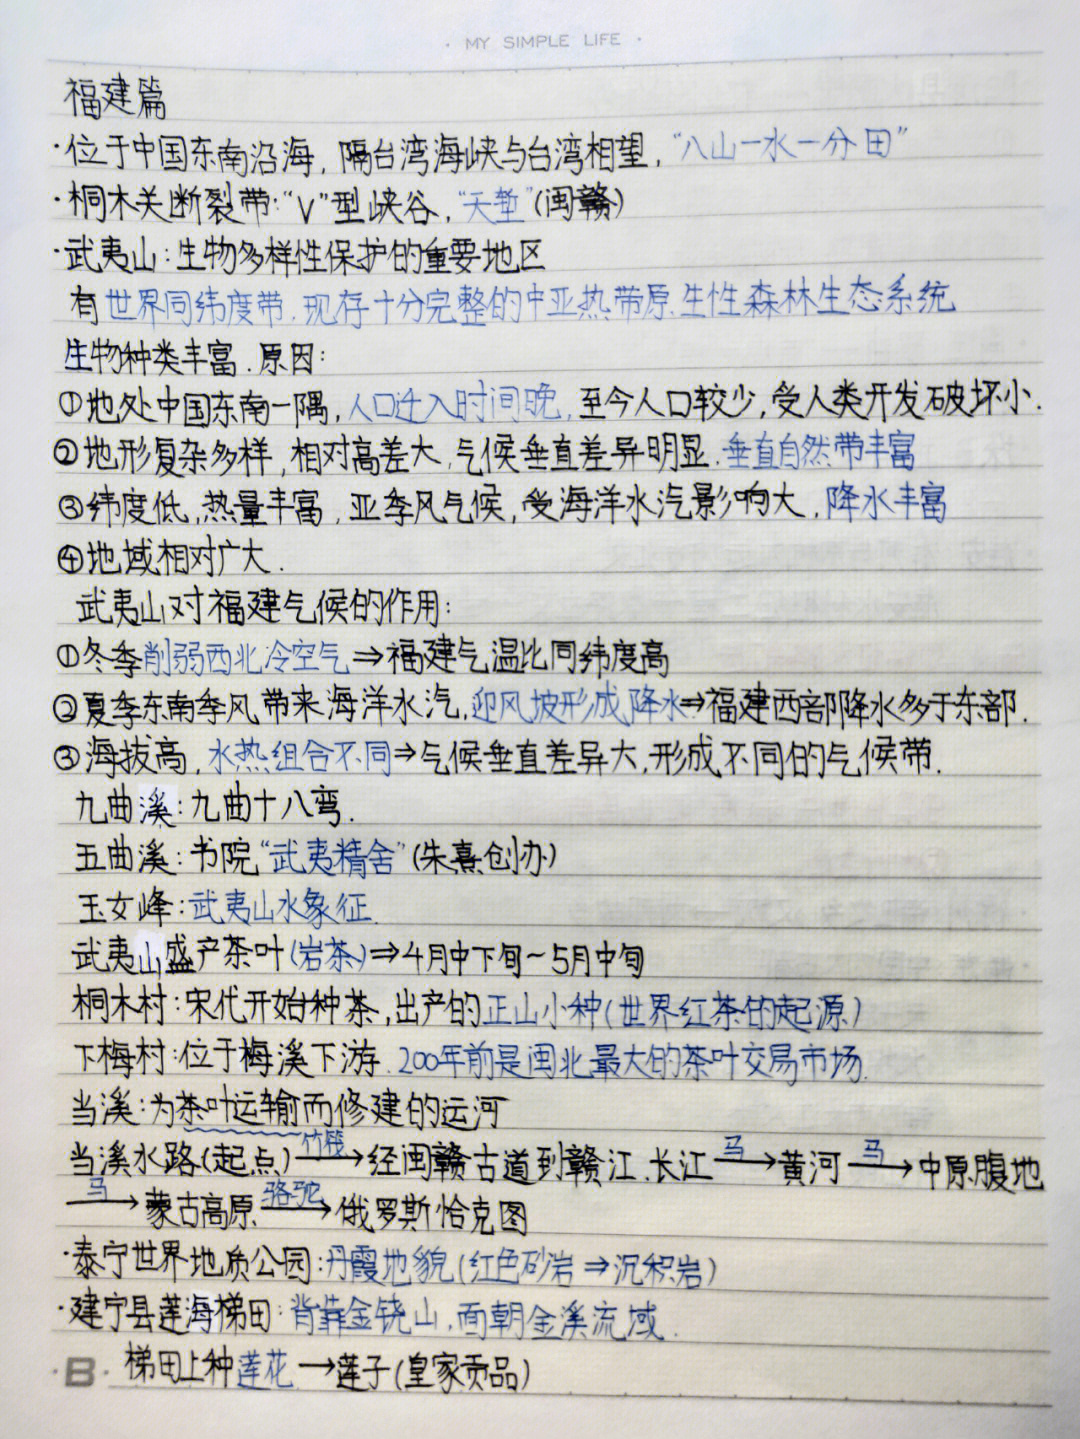 · MY SIMPLE LIFE ·
福建篇
·位于中国东南沿海，隔台湾海峡与台湾相望，“八山一水一分田”
·桐木关断裂带：“V”型峡谷，“天堑”(闽赣)
·武夷山：生物多样性保护的重要地区
有世界同纬度带.现存十分完整的中亚热带原生性森林生态系统
生物种类丰富.原因：
①地处中国东南一隅，人口迁入时间晚，至今人口较少，受人类开发破坏小.
②地形复杂多样，相对高差大，气候垂直差异明显.垂直自然带丰富
③纬度低，热量丰富，亚季风气候，受海洋水汽影响大，降水丰富
④地域相对广大.
武夷山对福建气候的作用：
①冬季削弱西北冷空气⇒福建气温比同纬度高
②夏季东南季风带来海洋水汽，迎风坡形成降水⇒福建西部降水多于东部.
③海拔高，水热组合不同⇒气候垂直差异大，形成不同的气候带.
九曲溪：九曲十八弯.
五曲溪：书院“武夷精舍”(朱熹创办)
玉女峰：武夷山水象征.
武夷山盛产茶叶(岩茶)⇒4月中下旬~5月中旬
桐木村：宋代开始种茶，出产的正山小种(世界红茶的起源)
下梅村：位于梅溪下游.200年前是闽北最大的茶叶交易市场.
当溪：为茶叶运输而修建的运河
当溪水路(起点) 竹筏→ 经闽赣古道到赣江.长江 马→ 黄河 马→ 中原腹地
马→ 蒙古高原 骆驼→ 俄罗斯恰克图
·泰宁世界地质公园：丹霞地貌(红色砂岩⇒沉积岩)
·建宁县莲海梯田：背靠金铙山，面朝金溪流域.
·B· 梯田上种莲花→莲子(皇家贡品)